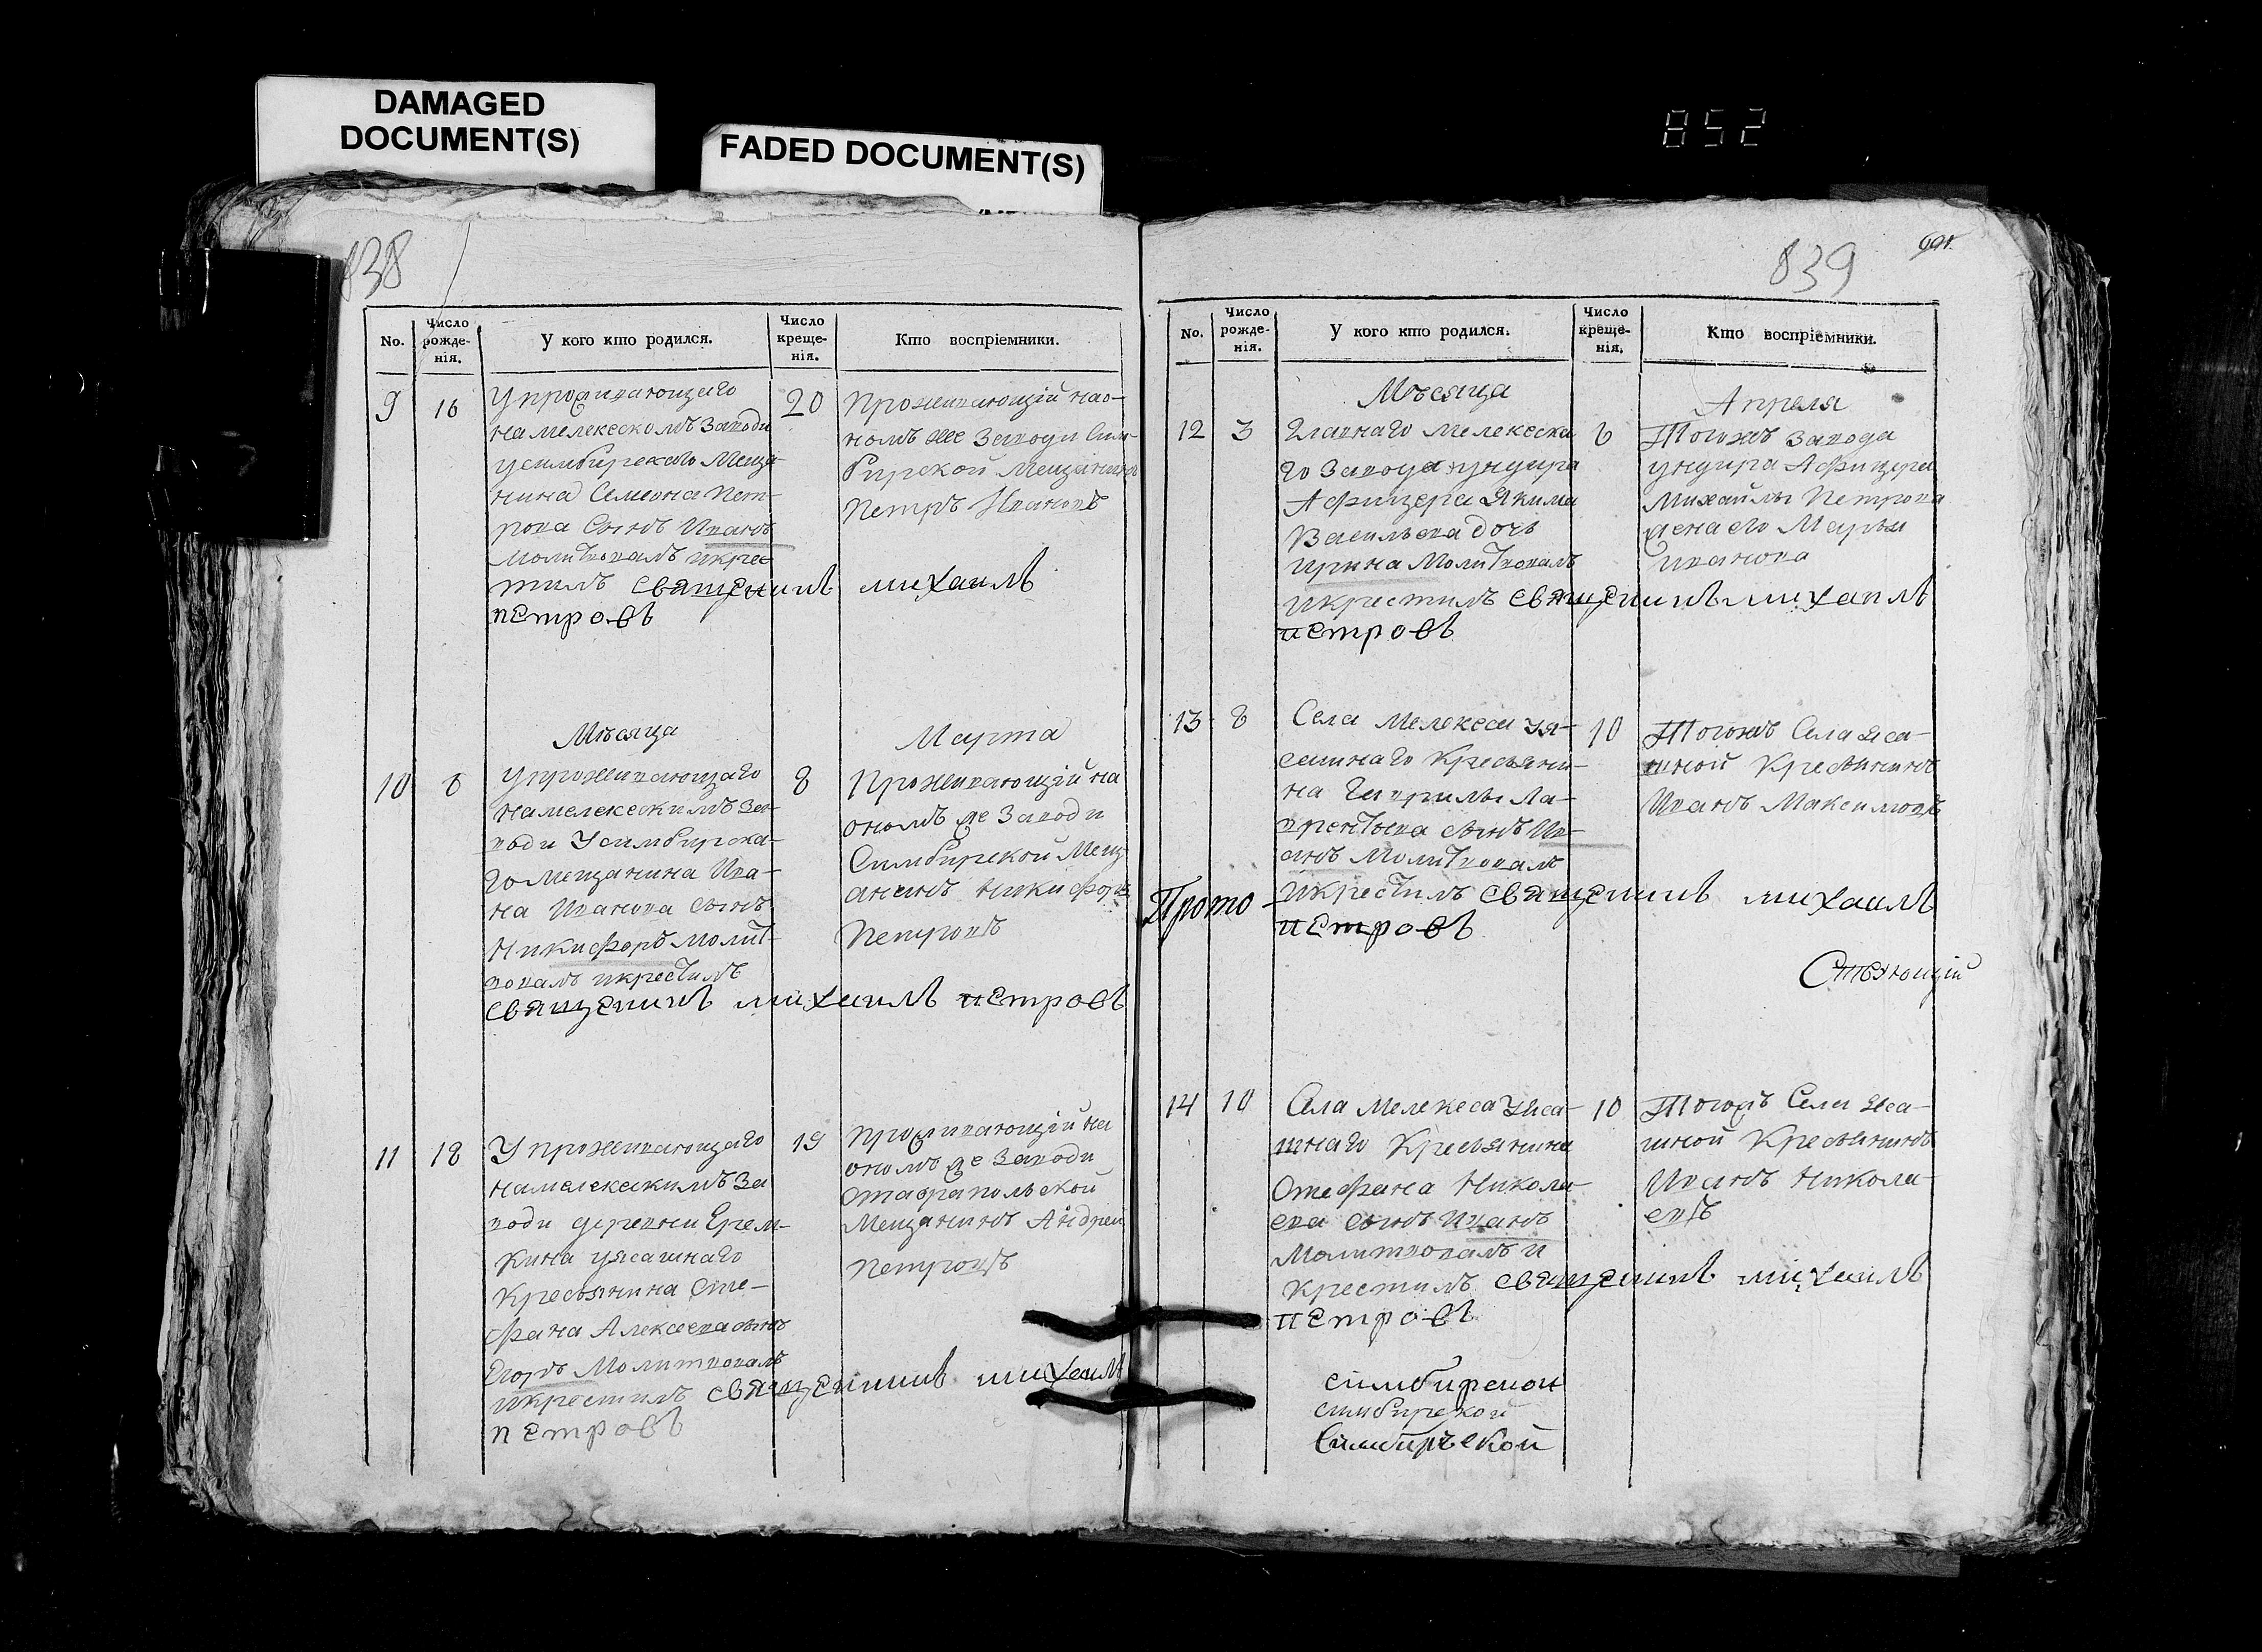 DAMAGED
DOCUMENT(S)
FADED DOCUMENT(S)
852
838
No.
Число рожде-нія.
У кого кто родился.
Число креще-нія.
Кто воспріемники.
9
16
У проживающаго
на мелекескомъ заводи
усимбирскаго Меща-
нина Семиона Пет-
рова Сынъ Иванъ
Молитвовалъ икрес-
тилъ священникъ михаилъ
петровъ
20
Проживающій нао-
номъ же Заводи Сим-
бирской Мещанинъ
Петръ Ивановъ
Мѣсяца
Марта
10
8
У проживающаго
на мелекескимъ за-
води Усимбирска-
го мещанина Ива-
на Иванова сынъ
Никифоръ молит-
вовалъ икрестилъ
священникъ михаилъ петровъ
8
Проживающій на
ономъ же Заводи
Симбирской Мещ-
анинъ Никифоръ
Петровъ
11
18
У проживающаго
на мелекескимъ За
води деревни Ерем-
кина уясашнаго
Кресьянина Сте-
фана Алексеева сынъ
Егоръ Молитвовалъ
икрестилъ священникъ михаилъ
петровъ
19
Проживающій на
ономъ же Заводи
Отаврапольской
Мещанинъ Андрей
Петровъ
839
No.
Число рожде-нія.
У кого кто родился.
Число креще-нія.
Кто воспріемники.
Мѣсяца
Апреля
12
3
Главнаго Мелекеска
го Завода ундира
Афицера Якима
Васильева дочь
Ирина Молитвовалъ
икрестилъ священникъ михаилъ
петровъ
6
Тогожъ завода
ундира Афицера
Михайлы Петрова
жена его Марья
Иванова
13
8
Села Мелекеса уя-
сашнаго Кресьяни-
на Гаврилы Ла-
врентьева сынъ Ив-
анъ Молитвовалъ
Прото-
икрестилъ священникъ михаилъ
петровъ
10
Тогожъ Села яса-
шной Кресьянинъ
Иванъ Максимовъ
Стоующій
14
10
Села Мелекеса уяса-
шнаго Кресьянина
Стефана Никола-
ева сынъ Иванъ
Молитвовалъ и
крестилъ священникъ михаилъ
петровъ
10
Тогожъ Села яса-
шной Кресьянинъ
Иванъ Никола-
евъ
симбирскои
симбирской
Симбирской